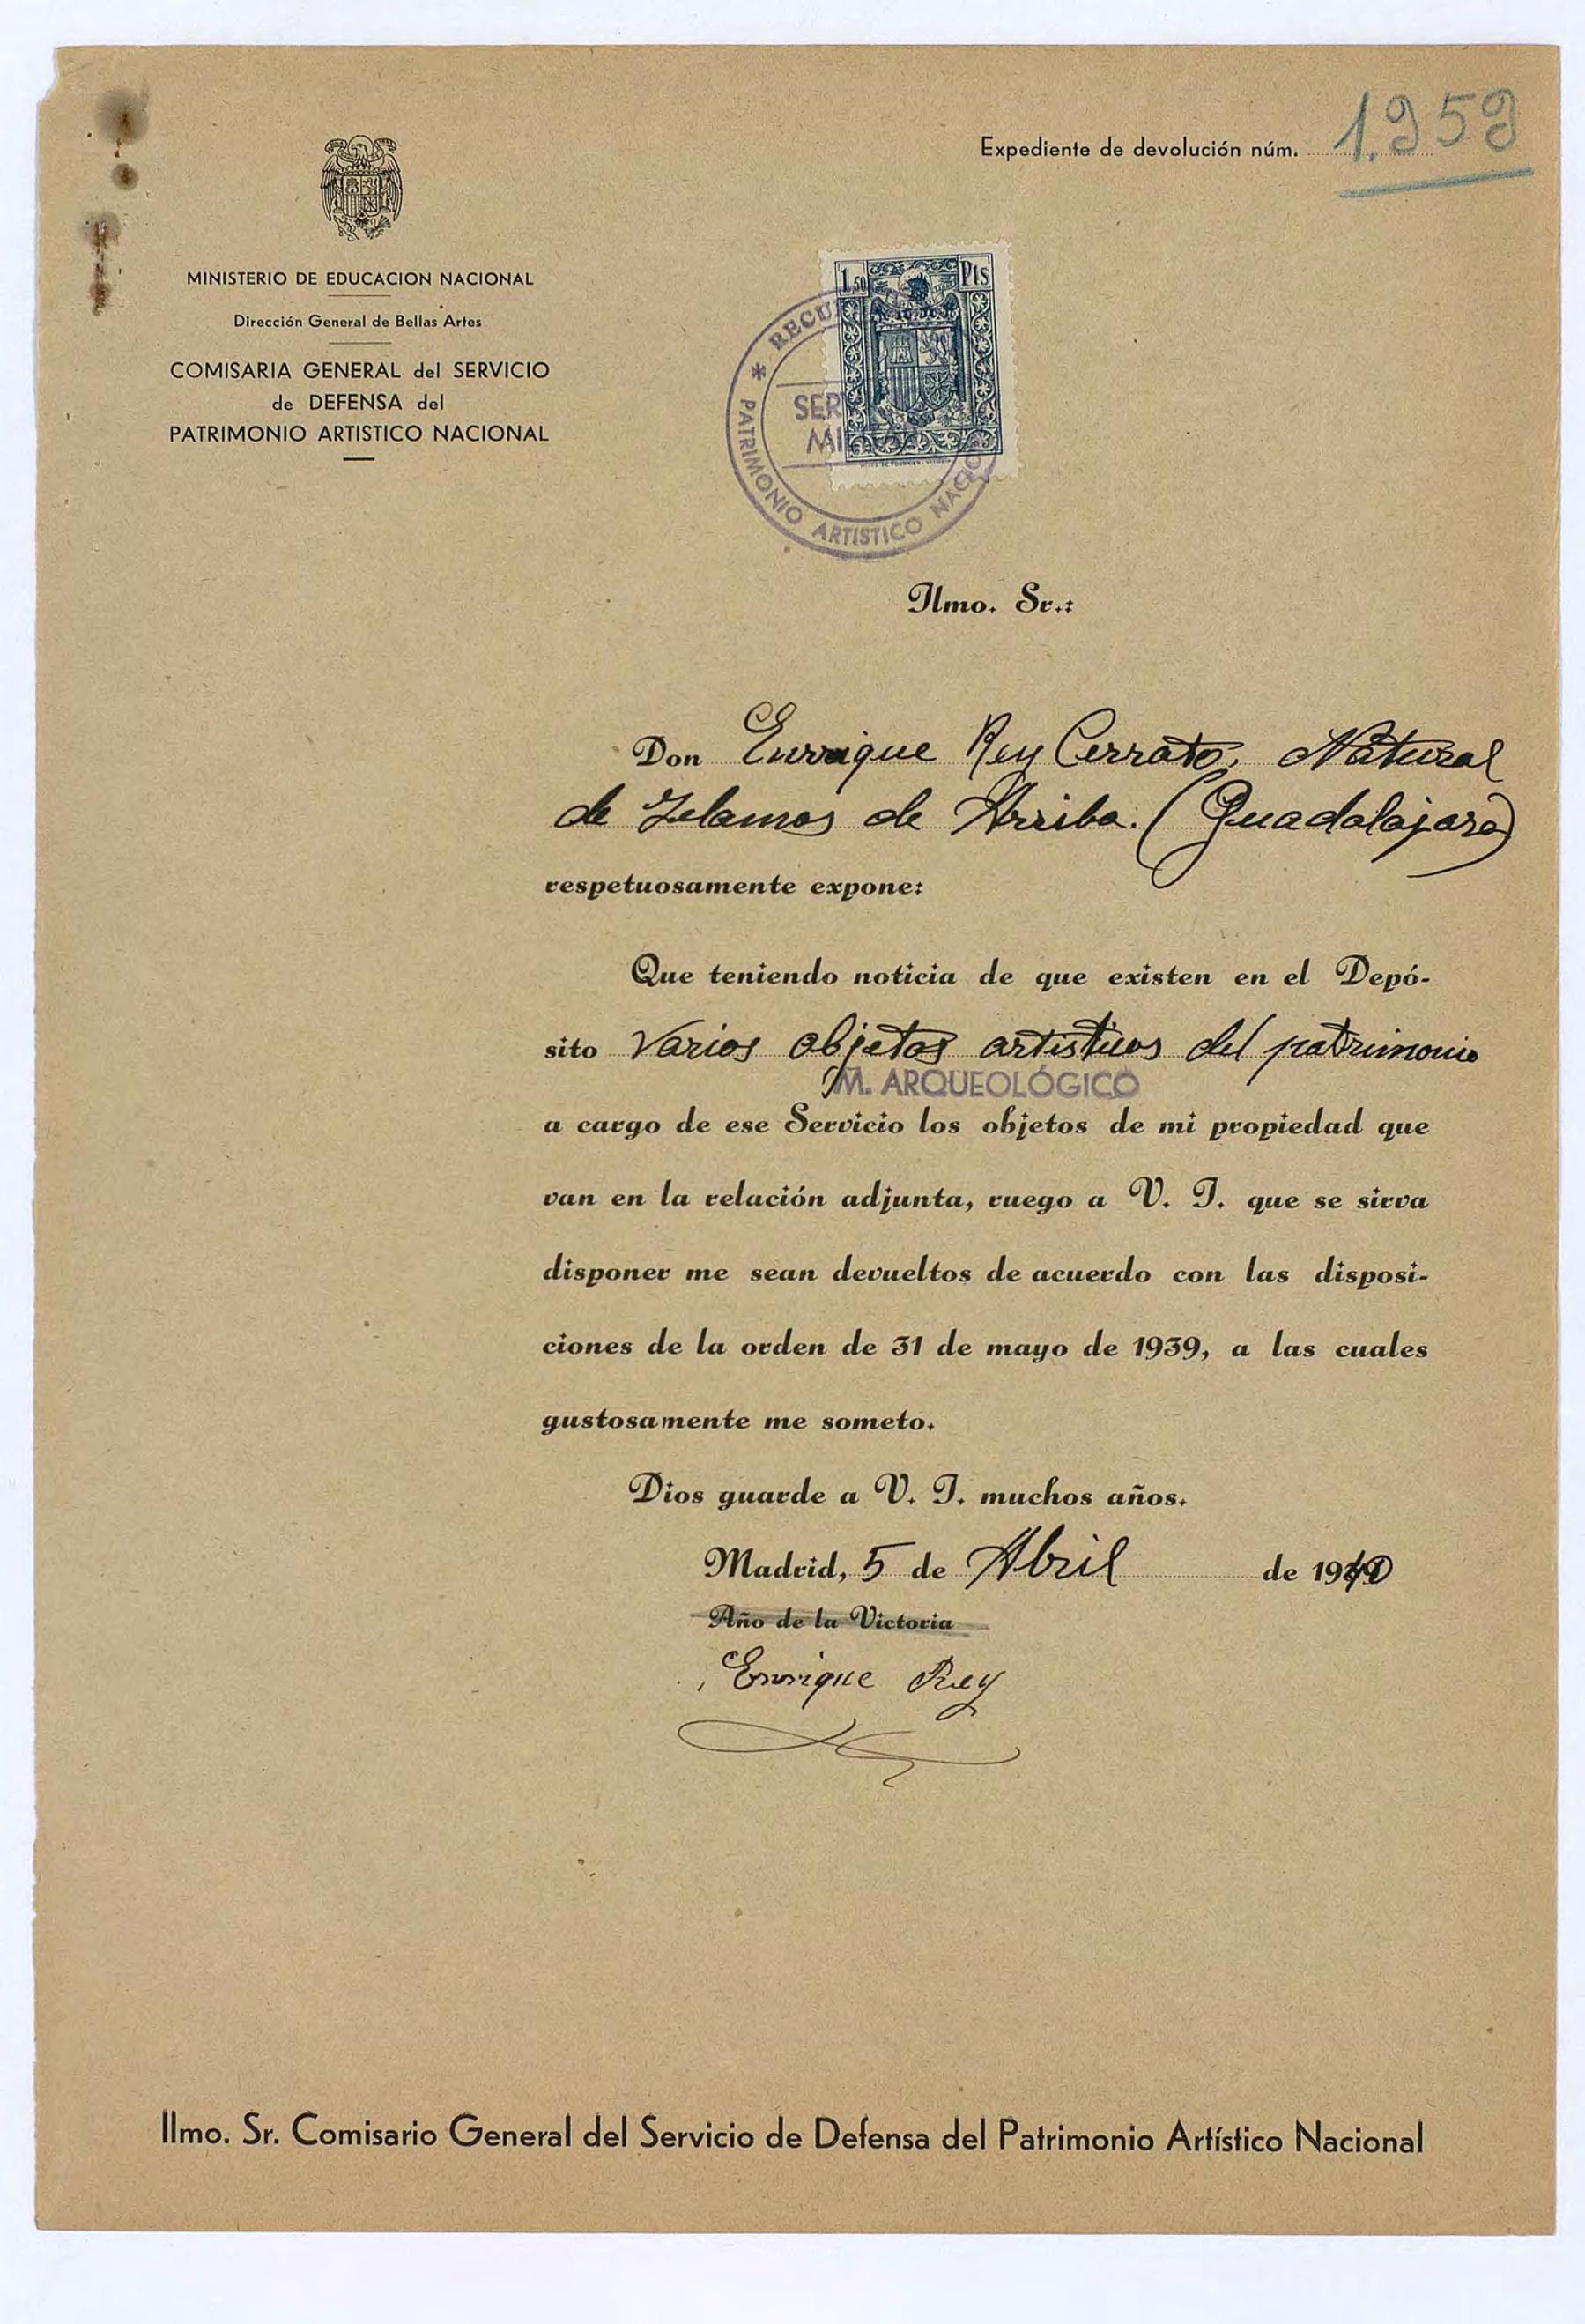 Expediente de devolución núm. 1.959
MINISTERIO DE EDUCACION NACIONAL
Dirección General de Bellas Artes
COMISARIA GENERAL del SERVICIO
de DEFENSA del
PATRIMONIO ARTISTICO NACIONAL
1,50 Pts
* RECU
SER
MI
PATRIMONIO ARTISTICO NACIO
Ilmo. Sr.:
Don Enrrique Rey Cerrato, Natural
de Yelamos de Arriba. (Guadalajara)
respetuosamente expone:
Que teniendo noticia de que existen en el Depó-
sito varios objetos artisticos del patrimonio
M. ARQUEOLÓGICO
a cargo de ese Servicio los objetos de mi propiedad que
van en la relación adjunta, ruego a V. I. que se sirva
disponer me sean devueltos de acuerdo con las disposi-
ciones de la orden de 31 de mayo de 1939, a las cuales
gustosamente me someto.
Dios guarde a V. I. muchos años.
Madrid, 5 de Abril de 1940
Año de la Victoria
Enrrique Rey
Ilmo. Sr. Comisario General del Servicio de Defensa del Patrimonio Artístico Nacional